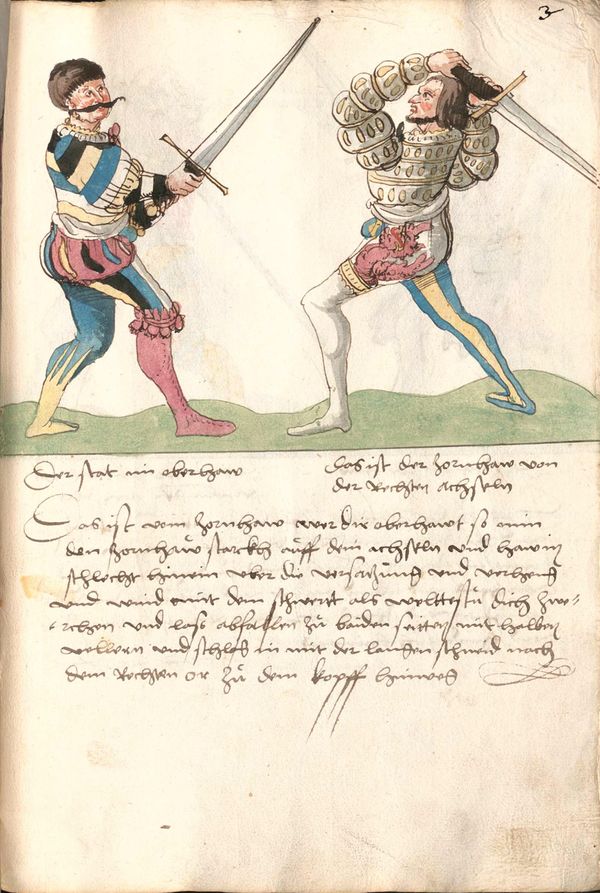 3
Der stat im oberhaw
Das ist der zornhaw von
der Rechten Achseln
Das ist vom zornhaw wer dir oberhawt so nim
den zornhaw starckh auff dem achseln und haw in
schlecht hinein uber die versatzung und verheng
und wind mit dem schwertt als wolttestu dich zwe-
rchen und lass abfallen zu baiden seitten mit halben
vellern und schlag in mit der langen schneid nach
dem Rechten or zu dem kopff hinweg